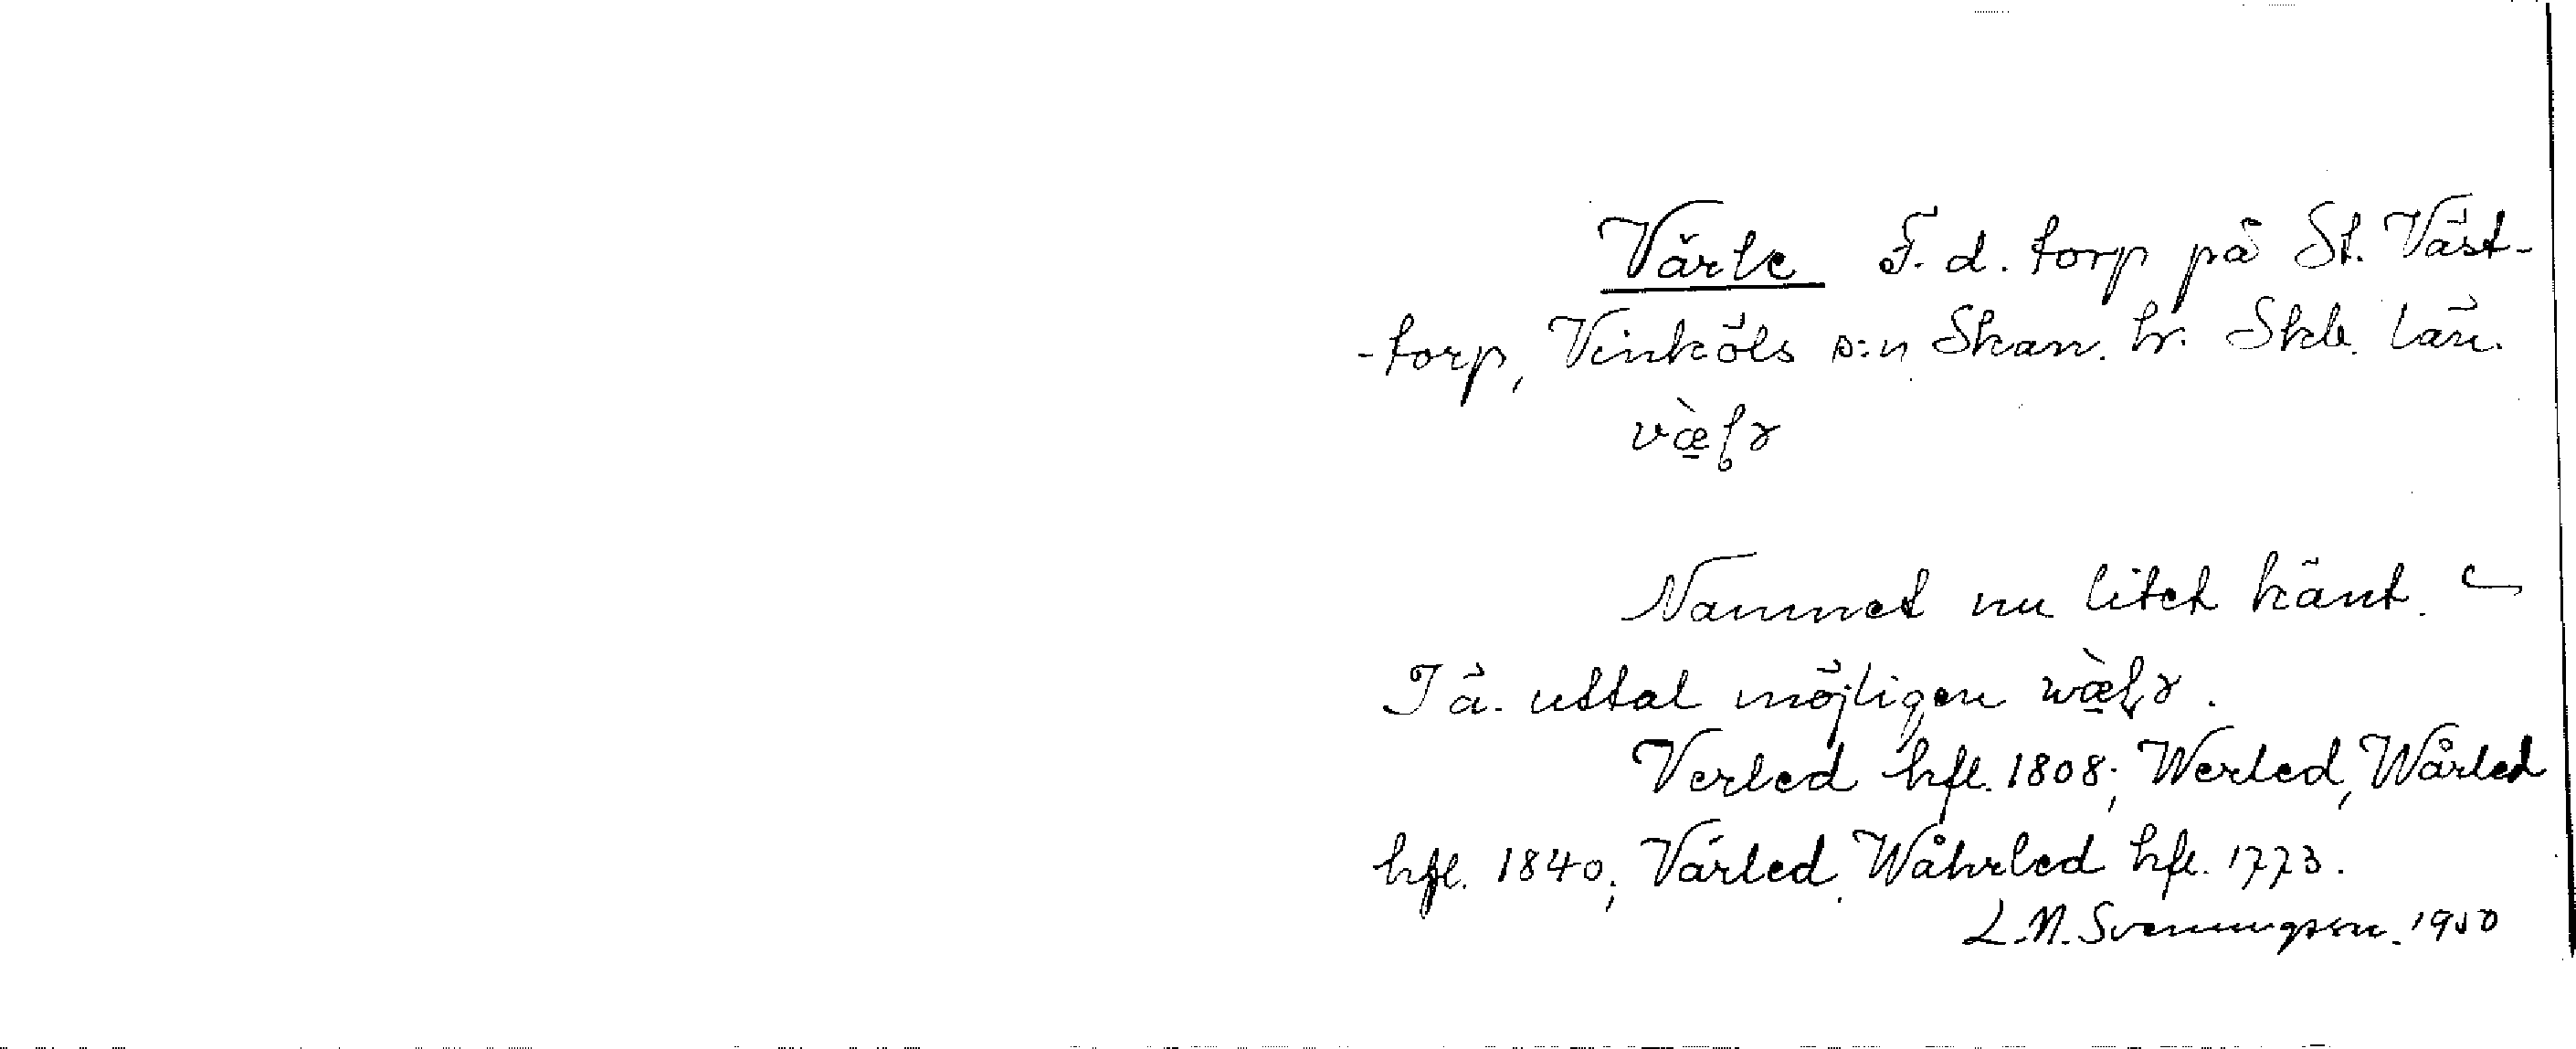 Värle F. d. torp på St. Väst-
-torp, Vinköls s:n Skan. hr. Skb. län.
Namnet nu litet känt.
I ä. uttal möjligen
Verled hfl. 1808; Werled, Wårled
hfl. 1840; Värled, Wåhrled hfl. 1773.
L. N. Svenungsson. 1950